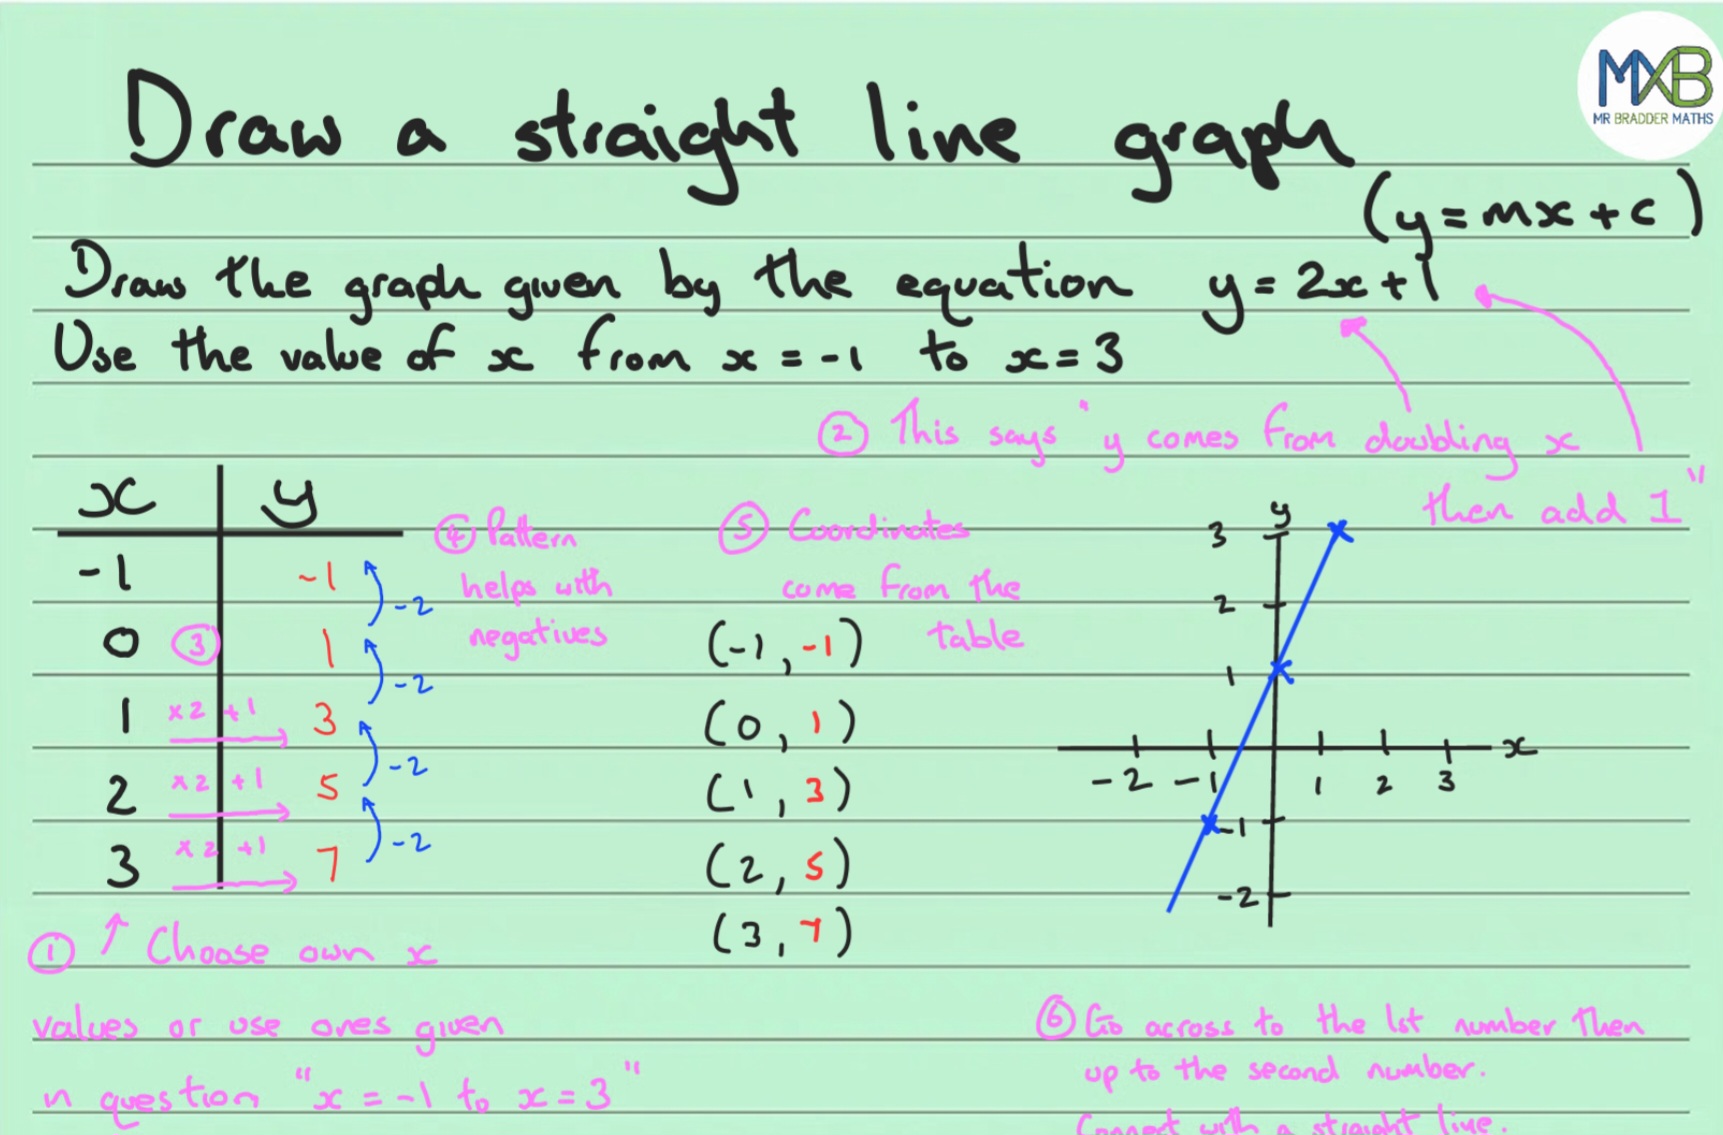 MXB
MR BRADDER MATHS
Draw a straight line graph
(y = mx + c)
Draw the graph given by the equation y = 2x + 1
Use the value of x from x = -1 to x = 3
② This says " y comes from doubling x
then add 1 "
x y
-1 -1
0 ③ 1
1 x2 +1 3
2 x2 +1 5
3 x2 +1 7
-2
-2
-2
-2
④ Pattern
helps with
negatives
⑤ Coordinates
come from the
table
(-1, -1)
(0, 1)
(1, 3)
(2, 5)
(3, 7)
y
3
2
1
-2 -1 1 2 3 x
-1
-2
① ↑ Choose own x
values or use ones given
in question "x = -1 to x = 3"
⑥ Go across to the 1st number then
up to the second number.
Connect with a straight line.